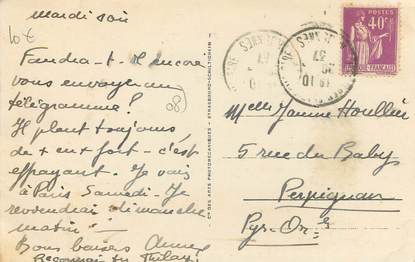 mardi soir
10€
Faudra-t-il encore
vous envoyer un
télégramme?
Il pleut toujours
de + en + fort - c'est
effrayant. Je vais
à Paris Samedi - Je
reviendrai dimanche
matin
Bons baisers
08
Cie DES ARTS PHOTOMÉCANIQUES - STRASBOURG-SCHILTIGHEIM
POSTES
40c
Melle Jeanne Houllier
5 rue du Baby
Perpignan
Pyr-Ores